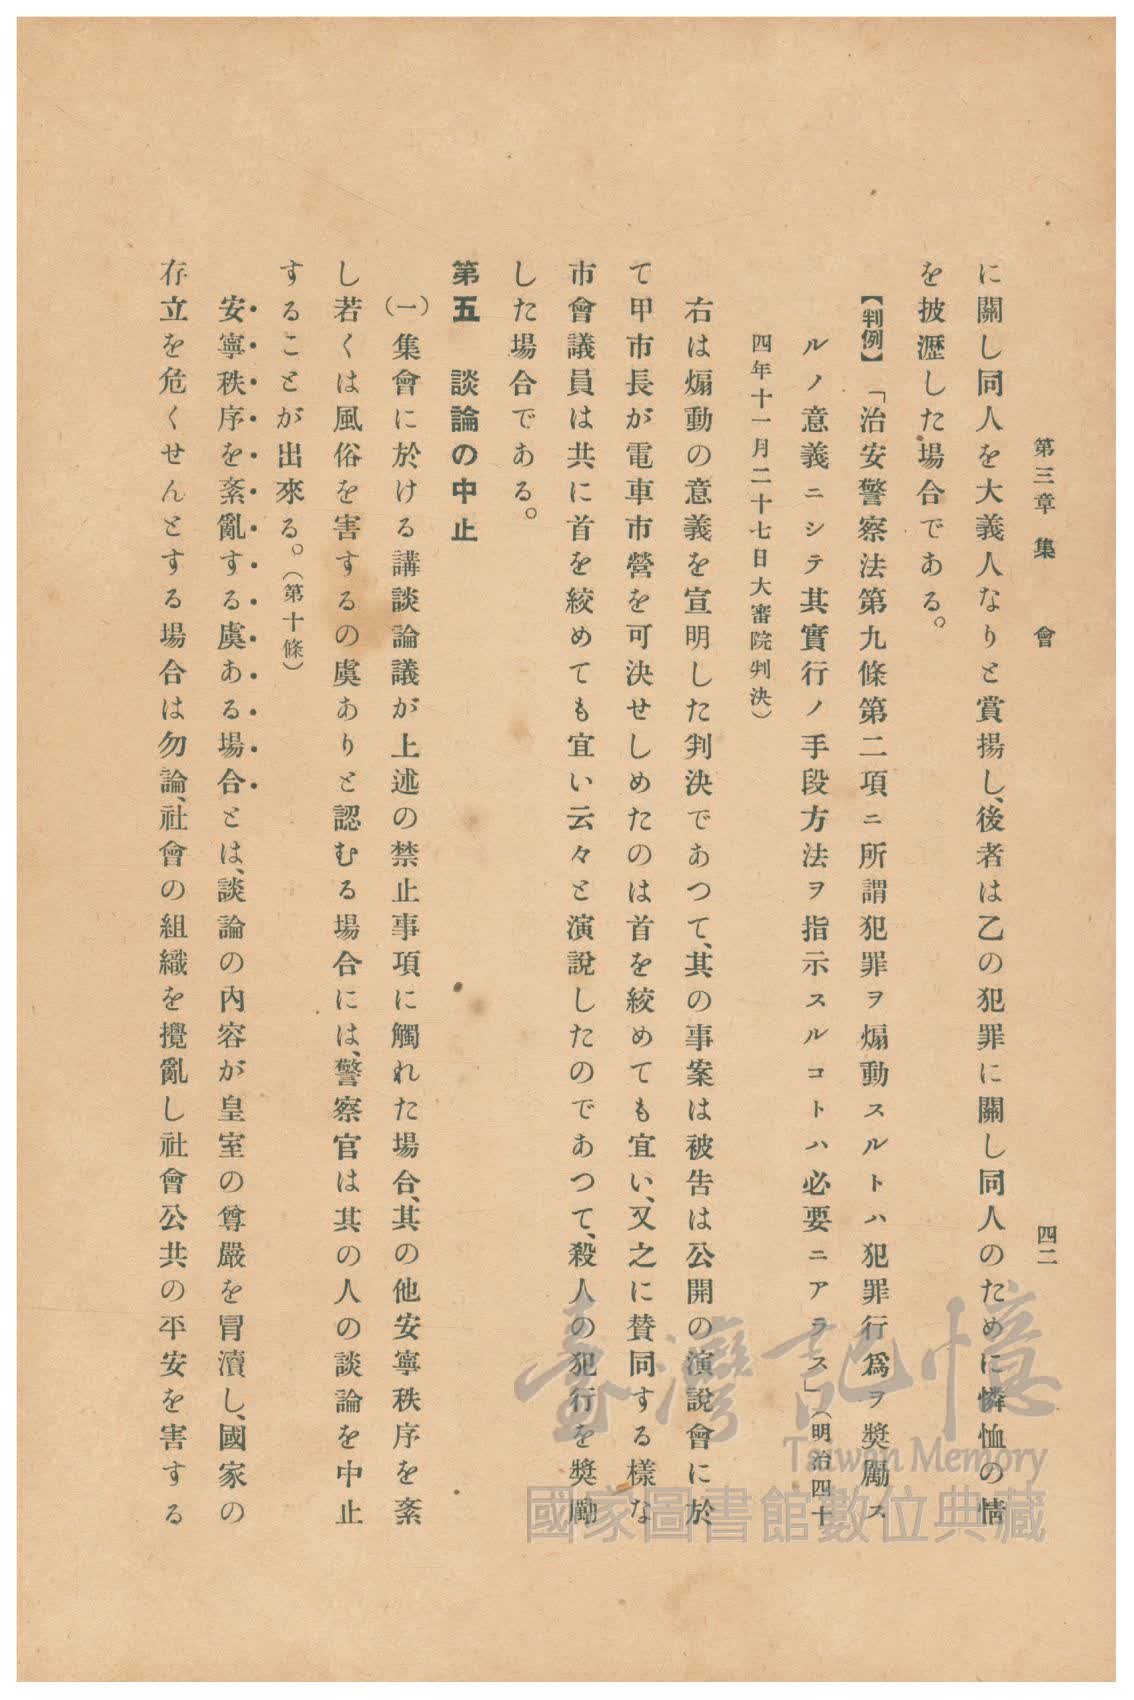 第三章 集 會
四二
に關し同人を大義人なりと賞揚し、後者は乙の犯罪に關し同人のために憐恤の情
を披瀝した場合である。
【判例】 「治安警察法第九條第二項ニ所謂犯罪ヲ煽動スルトハ犯罪行爲ヲ奬勵ス
ルノ意義ニシテ其實行ノ手段方法ヲ指示スルコトハ必要ニアラス」(明治四十
四年十一月二十七日大審院判決)
右は煽動の意義を宣明した判決であつて、其の事案は被告は公開の演說會に於
て甲市長が電車市營を可決せしめたのは首を絞めても宜い、又之に賛同する樣な
市會議員は共に首を絞めても宜い云々と演說したのであつて、殺人の犯行を奬勵
した場合である。
第五 談論の中止
(一)集會に於ける講談論議が上述の禁止事項に觸れた場合、其の他安寧秩序を紊
し若くは風俗を害するの虞ありと認むる場合には、警察官は其の人の談論を中止
することが出來る。(第十條)
安寧秩序を紊亂する虞ある場合とは、談論の內容が皇室の尊嚴を冒瀆し、國家の
存立を危くせんとする場合は勿論、社會の組織を攪亂し社會公共の平安を害する
臺灣記憶
Taiwan Memory
國家圖書館數位典藏